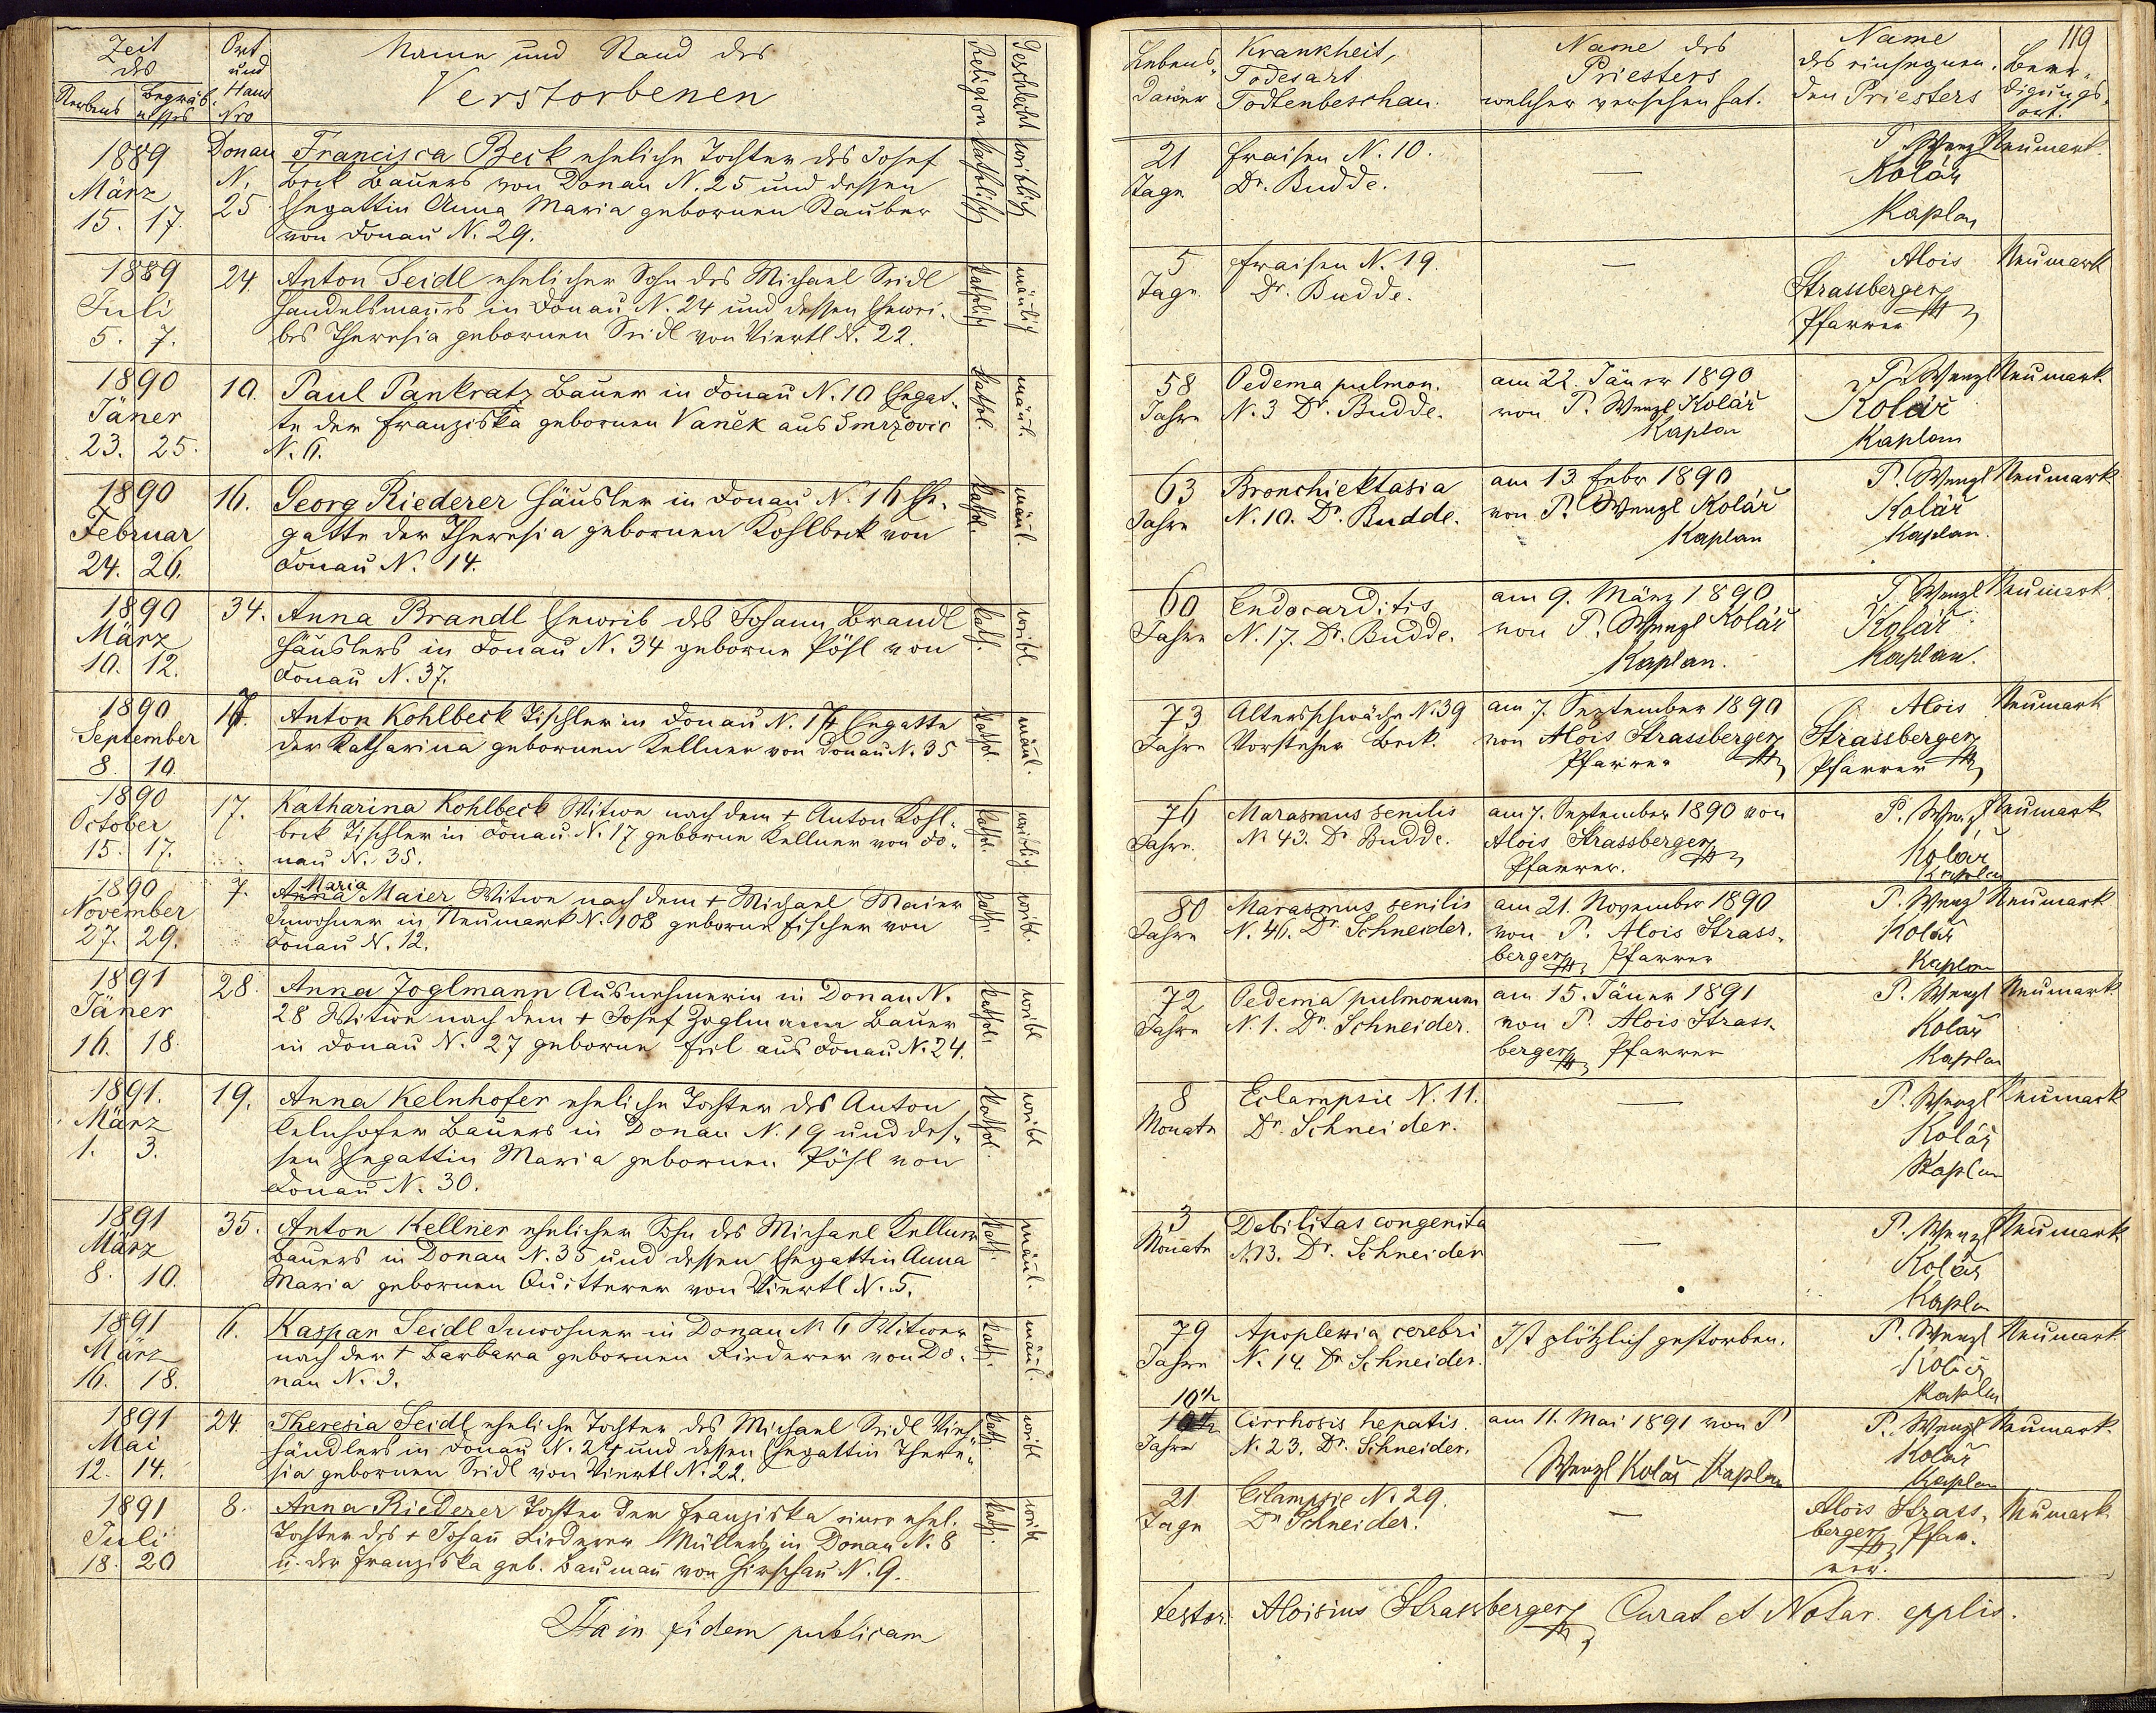 Zeit
des
Sterbens
Begräb-
nisses
Ort
und
Haus
Nro
Name und Stand des
Verstorbenen
Religion
Geschlecht
1889
März
15. 17.
Donau
N.
25
Francisca Beck eheliche Tochter des Josef
Beck Bauers von Donau N. 25 und dessen
Ehegattin Anna Maria gebornen Stauber
von Donau N. 29.
katholisch
weiblich
1889
Juli
5. 7.
24.
Anton Seidl ehelicher Sohn des Michael Seidl
Handelsmañes in Donau N. 24 und dessen Ehewei-
bes Theresia gebornen Seidl von Viertl N. 22.
katholisch
mäñlich
1890
Jäner
23. 25.
10.
Paul Pankratz Bauer in Donau N. 10 Ehegat-
te der Franziska gebornen Vaněk aus Smrzovic
N. 6.
kathol.
mäñl.
1890
Februar
24. 26.
16.
Georg Riederer Häusler in Donau N. 16 Ehe-
gatte der Theresia gebornen Kohlbeck von
Donau N. 14.
kathol.
mäñl.
1890
März
10. 12.
34.
Anna Brandl Eheweib des Johann Brandl
Häuslers in Donau N. 34 geborne Pöhl von
Donau N. 37.
kath.
weibl.
1890
September
8. 10.
17.
Anton Kohlbeck Tischler in Donau N. 17 Ehegatte
der Katharina gebornen Kellner von Donau N. 35
kathol.
mäñl.
1890
October
15. 17.
17.
Katharina Kohlbeck Witwe nach dem + Anton Kohl-
beck Tischler in Donau N. 17 geborne Kellner von Do-
nau N. 35.
kathol.
weiblich
1890
November
27. 29.
7.
Maria
Anna Maier Witwe nach dem + Michael Maier
Inwohner in Neumark N. 108 geborne Fischer von
Donau N. 12.
kath.
weibl.
1891
Jäner
16. 18.
28.
Anna Zoglmann Ausnehmerin in Donau N.
28 Witwe nach dem + Josef Zoglmann Bauer
in Donau N. 27 geborne Feil aus Donau N. 24.
kathol.
weibl
1891.
März
1. 3.
19.
Anna Kelnhofer eheliche Tochter des Anton
Kelnhofer Bauers in Donau N. 19 und des-
sen Ehegattin Maria gebornen Pöhl von
Donau N. 30.
kathol.
weibl
1891
März
8. 10.
35.
Anton Kellner ehelicher Sohn des Michael Kellner
Bauers in Donau N. 35 und dessen Ehegattin Anna
Maria gebornen Quitterer von Viertl N. 5.
kath.
mäñl.
1891
März
16. 18.
6.
Kaspar Seidl Inwohner in Donau N. 6 Witwer
nach der + Barbara gebornen Riederer von Do-
nau N. 3.
kath.
mäñl.
1891
Mai
12. 14.
24.
Theresia Seidl eheliche Tochter des Michael Seidl Vieh-
händlers in Donau N. 24 und dessen Ehegattin There-
sia gebornen Seidl von Viertl N. 22.
kath.
weibl
1891
Juli
18. 20
8.
Anna Riederer Tochter der Franziska einer ehel.
Tochter des + Johañ Riederer Müllers in Donau N. 8
u. der Franziska geb. Baumañ von Hirschau N. 9.
kath.
weibl
Ita in fidem publicam
119
Lebens-
dauer
Krankheit,
Todesart
Todtenbeschau.
Name des
Priesters
welcher versehen hat.
Name
des einsegnen-
den Priesters
Beer-
digungs-
ort.
21
Tage
Fraisen N. 10.
Dr. Budde.
—
P. Wenzl
Kolář
Kaplan
Neumark.
5
Tage
Fraisen N. 19.
Dr. Budde.
—
Alois
Strassberger
Pfarrer
Neumark
58
Jahre
Oedema pulmon.
N. 3 Dr. Budde.
am 22. Jäner 1890
von P. Wenzl Kolář
Kaplan
P. Wenzl
Kolář
Kaplan
Neumark.
63
Jahre
Bronchiektasia
N. 10. Dr. Budde.
am 13. Febr 1890
von P. Wenzl Kolář
Kaplan
P. Wenzl
Kolář
Kaplan.
Neumark
60
Jahre
Endocarditis
N. 17. Dr. Budde.
am 9. März 1890
von P. Wenzl Kolář
Kaplan.
P. Wenzl
Kolář
Kaplan.
Neumark.
73
Jahre
Altersschwäche N. 39
Vorsteher Beck.
am 7. September 1890
von Alois Strassberger
Pfarrer
Alois
Strassberger
Pfarrer
Neumark
76
Jahre.
Marasmus senilis
N. 43. Dr Budde.
am 7. September 1890 von
Alois Strassberger
Pfarrer.
P. Wenzl
Kolář
Kaplan
Neumark
80
Jahre
Marasmus senilis
N. 46. Dr Schneider.
am 21. November 1890
von P. Alois Strass-
berger Pfarrer
P. Wenzl
Kolář
Kaplan
Neumark
72
Jahre
Oedema pulmonum
N. 1. Dr. Schneider.
am 15. Jäner 1891
von P. Alois Strass-
berger Pfarrer
P. Wenzl
Kolář
Kaplan
Neumark.
8
Monate
Eclampsie N. 11.
Dr. Schneider.
—
P. Wenzl
Kolář
Kaplan
Neumark
3
Monate
Debilitas congenita
N. 13. Dr. Schneider
—
P. Wenzl
Kolář
Kaplan
Neumark
79
Jahre
Apoplexia cerebri
N. 14. Dr Schneider.
Ist plötzlich gestorben.
P. Wenzl
Kolář
Kaplan
Neumark.
10½
Jahre
Cirrhosis hepatis.
N. 23. Dr. Schneider.
am 11. Mai 1891 von P
Wenzl Kolář Kaplan
P. Wenzl
Kolář
Kaplan
Neumark.
21
Tage
Eclampsie N. 29.
Dr Schneider.
—
Alois Strass-
berger Pfar-
rer.
Neumark.
testor. Aloisius Strassberger Curat et Notar. epplis.